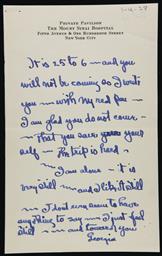 PRIVATE PAVILION
THE MOUNT SINAI HOSPITAL
FIFTH AVENUE & ONE HUNDREDTH STREET
NEW YORK CITY
It is 25 to 6 — and you
will not be coming so I write
you — with my red pen —
I am glad you do not come
— that you save your
self — the trip is hard —
I am alone — it is
very still — and
— I dont seem to have
anything to say — I just feel
still — and toward you
Georgia